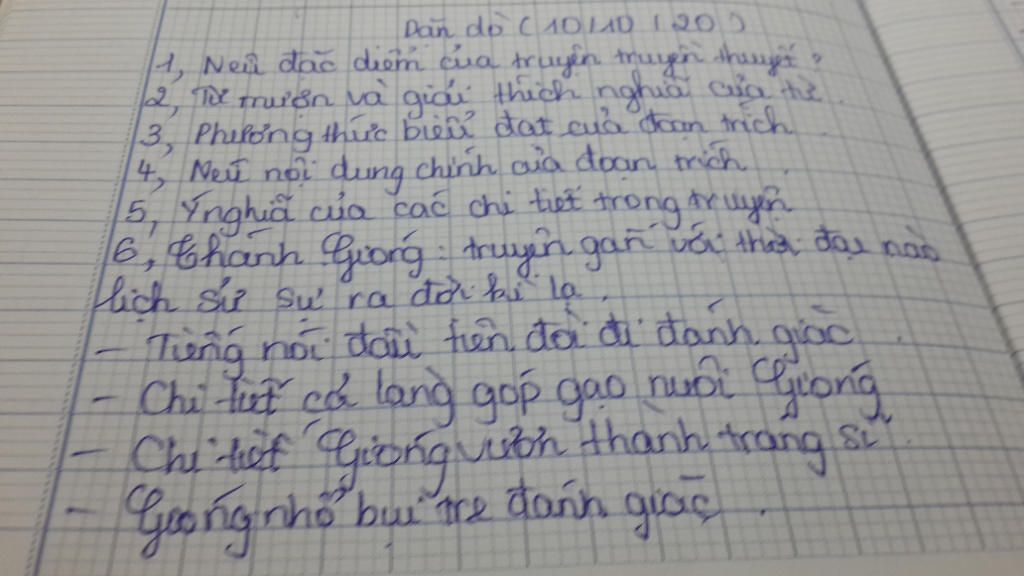 Dặn dò (10/10/20)
1, Nêu đặc điểm của truyện truyền thuyết?
2, Từ mượn và giải thích nghĩa của từ.
3, Phương thức biểu đạt của đoạn trích.
4, Nêu nội dung chính của đoạn trích.
5, Ý nghĩa của các chi tiết trong truyện
6, Thánh Gióng: truyện gắn với thời đại nào
lịch sử sự ra đời kì lạ.
- Tiếng nói đầu tiên đòi đi đánh giặc.
- Chi tiết cả làng góp gạo nuôi Gióng
- Chi tiết Gióng vươn thành tráng sĩ.
- Gióng nhổ bụi tre đánh giặc.